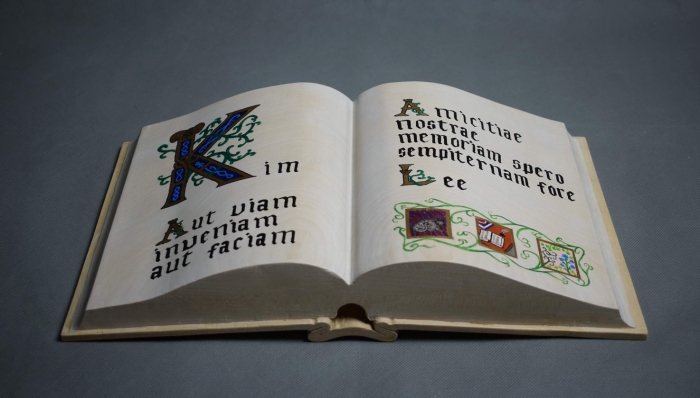 Kim
Aut viam
inveniam
aut faciam
Amicitiae
nostrae
memoriam spero
sempiternam fore
Lee